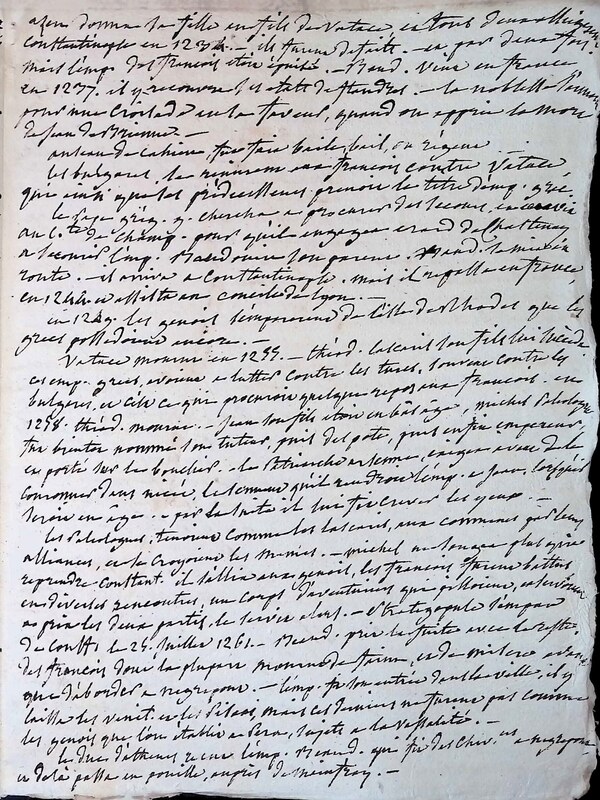 azen donna sa fille au fils de Vatace, et tous deux assiegerent
Constantinople en 1234. — ils furent defaits — et par deux fois.
mais l'emp. des francois etoit épuisé. — Baud. vint en france
en 1237. il y recouvra ses etats de flandres. — la noblesse s'
pour une croisade en sa faveur, quand on apprit la mort
de jean de Brienne. —
anseau de cahieu, fut fait baile, bail, ou régent —
les bulgares, se réunirent aux francois contre Vatace,
qui ainsi que ses prédécesseurs prenoit le titre d'emp. grec.
le pape grég. 9. chercha a procurer des secours, en
au C.te de champ. pour qu'il engageat erard de
a secourir l'emp. Baudouin son parent. Baud. se mit en
route. — il arriva a Constantinople. mais il repassa en france,
en 1244. et assista au concile de Lyon. —
en 1249. les genois s'emparerent de l'isle de Rhodes que les
grecs possedoient encore. —
Vatace mourut en 1255. — théod. lascaris son fils lui succéda
ces emp. grecs, avoient a lutter contre les turcs, souvent contre les
bulgares, et c'est ce qui procuroit quelque repos aux francois. en
1258. théod. mourut. — Jean son fils etoit en bas âge, michel Paleologue
fut bientot nommé son tuteur, puis despote, puis enfin empereur,
et porté sur les boucliers. — le Patriarche arsenne, exigea avant de le
couronner dans nicée, le serment qu'il rendroit l'emp. a jean, lorsqu'il
seroit en âge. — par la suite il lui fit crever les yeux. —
les Paleologues, tenoient comme les lascaris, aux comnenes par leurs
alliances, et se croyoient les memes. — michel ne songea plus qu'a
reprendre constant. il s'allia aux genois, les francois furent battus
en diverses rencontres, un corps d'aventuriers qui pilloient, et servoient
a prix les deux partis, le servit alors. — Stratagopule s'empara
de constple le 25. Juillet 1261. — Baud. prit la fuite avec le reste
des francois dont la plupart moururent de faim, et de misere avant
que d'aborder a negrepont. — l'emp. fit son entrée dans la ville, il y
laissa les venit. et les Pisans, mais ces derniers ne furent pas comme
les genois que l'on établit a Pera, sujets a la vassalité. —
le duc d'athenes recut l'emp. Baud. qui fit des chev. a negrepont
et de là passa en pouille, auprès de mainfroy. —